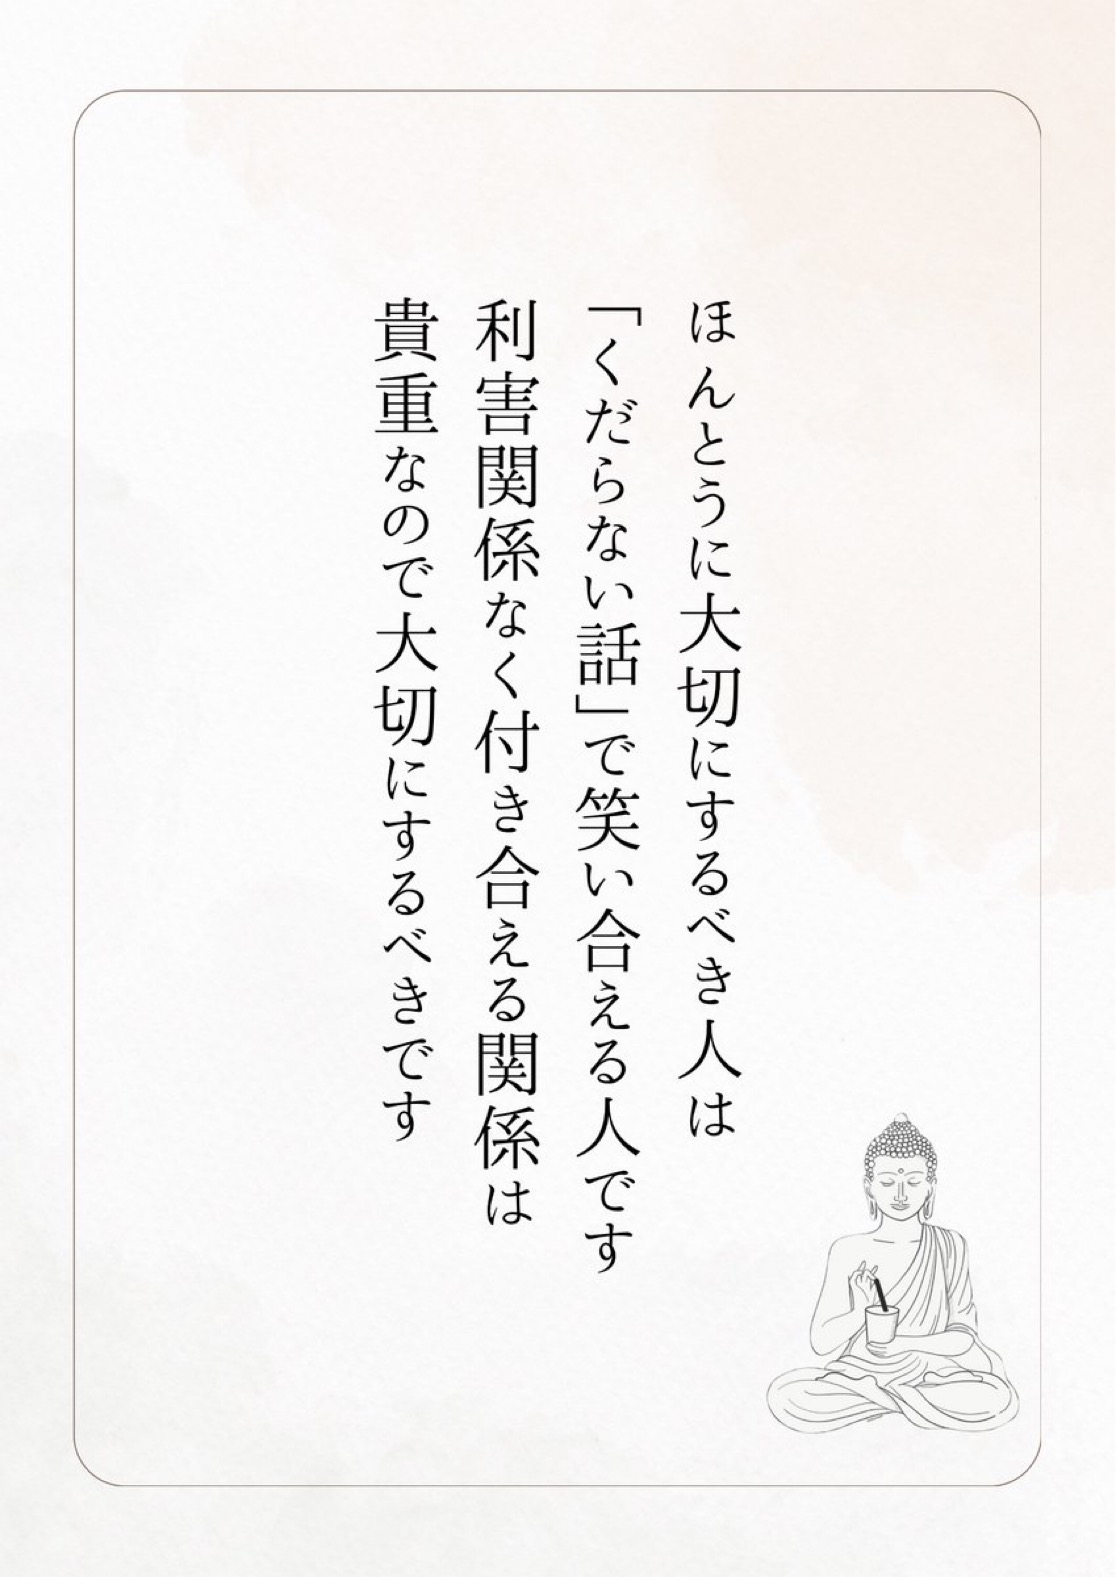 ほんとうに大切にするべき人は
「くだらない話」で笑い合える人です
利害関係なく付き合える関係は
貴重なので大切にするべきです